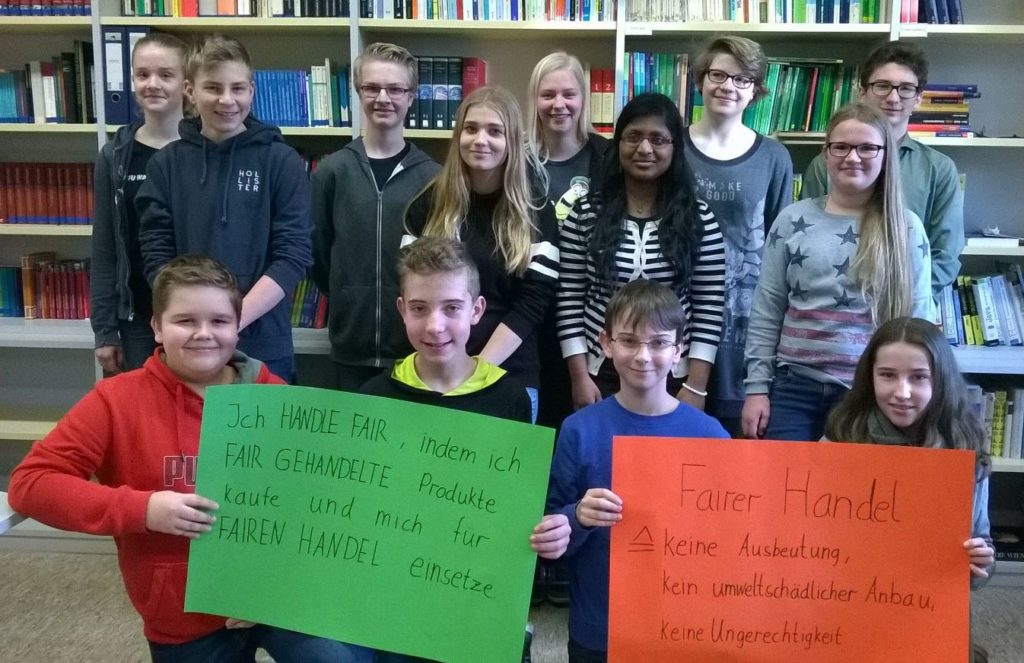 HOL
LIS
TER
MAKE
GOOD
PUM
Ich HANDLE FAIR, indem ich
FAIR GEHANDELTE Produkte
kaufe und mich für
FAIREN HANDEL einsetze
Fairer Handel
≙ keine Ausbeutung,
kein umweltschädlicher Anbau,
keine Ungerechtigkeit